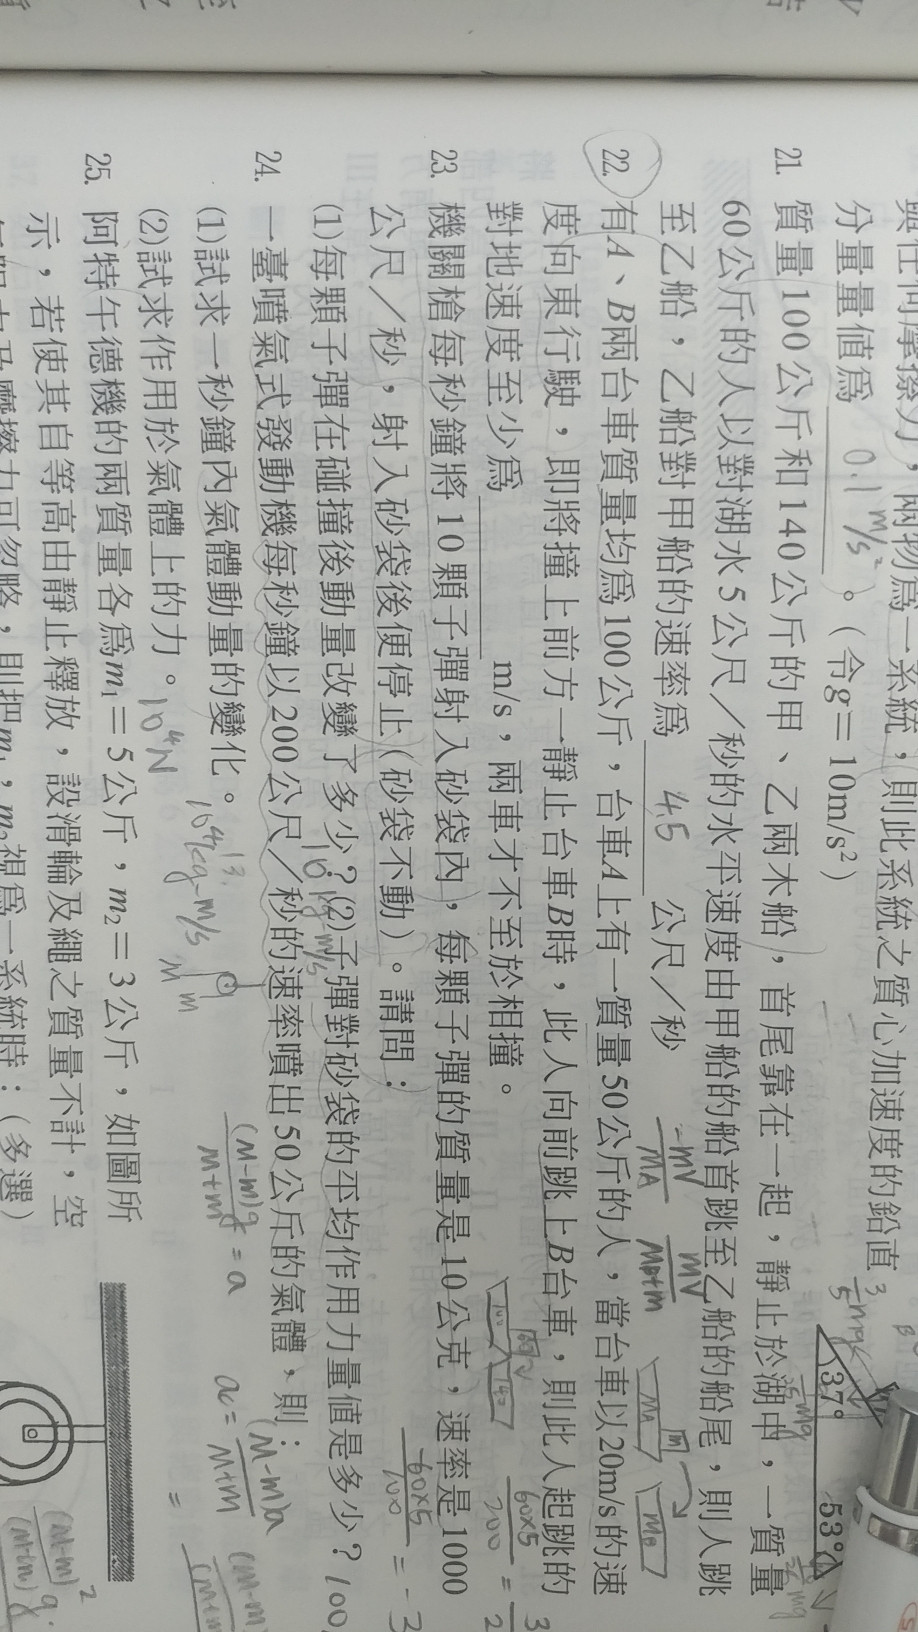 分量量值為 0.1 m/s² 。(令g=10m/s²)
21. 質量100公斤和140公斤的甲、乙兩木船,首尾靠在一起,靜止於湖中,一質量
60公斤的人以對湖水5公尺/秒的水平速度由甲船的船首跳至乙船的船尾,則人跳
至乙船,乙船對甲船的速率為 4.5 公尺/秒
22. 有A、B兩台車質量均為100公斤,台車A上有一質量50公斤的人,當台車以20m/s的速
度向東行駛,即將撞上前方一靜止台車B時,此人向前跳上B台車,則此人起跳的
對地速度至少為 m/s,兩車才不至於相撞。
23. 機關槍每秒鐘將10顆子彈射入砂袋內,每顆子彈的質量是10公克,速率是1000
公尺/秒,射入砂袋後便停止(砂袋不動)。請問:
(1)每顆子彈在碰撞後動量改變了多少?(2)子彈對砂袋的平均作用力量值是多少? 100
10 kg m/s
24. 一臺噴氣式發動機每秒鐘以200公尺/秒的速率噴出50公斤的氣體,則:
(1)試求一秒鐘內氣體動量的變化。 10⁴ kg-m/s
(2)試求作用於氣體上的力。 10⁴N
25. 阿特午德機的兩質量各為m₁=5公斤,m₂=3公斤,如圖所
示,若使其自等高由靜止釋放,設滑輪及繩之質量不計,空
37°
53°
-mV/MA
mV/MB+m
MA
m
MB
60×5/200 = 3/2
60×5/100 = -3
(M-m)g/M+m = a
ac = (M-m)a/M+m